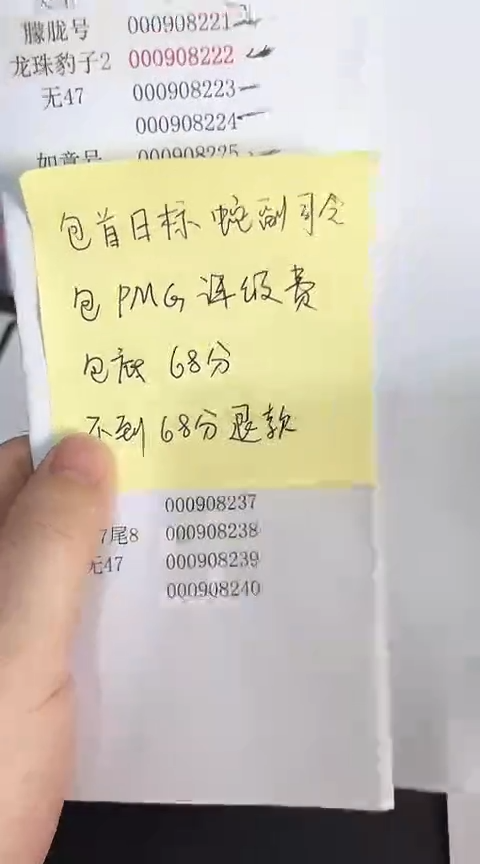 朦胧号 000908221
龙珠豹子2 000908222
无47 000908223
000908224
如意号 000908225
包首日标 蛇副司令
包 PMG 评级费
包底 68分
不到 68分 退款
000908237
7尾8 000908238
无47 000908239
000908240